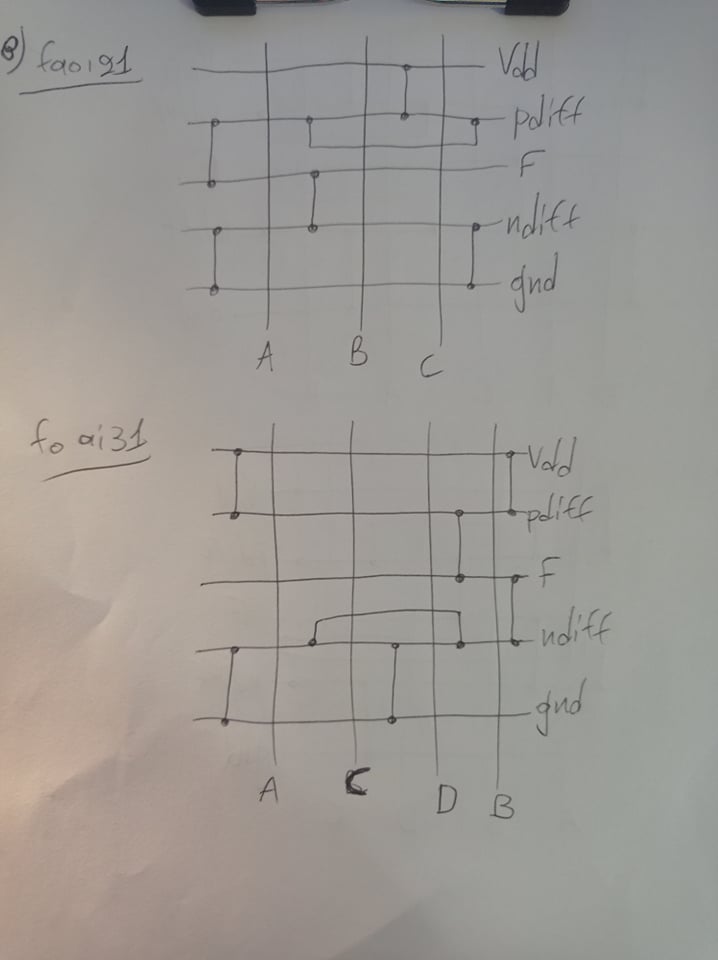 B) faoi21
Vdd
pdiff
F
ndiff
gnd
A B C
foai31
Vdd
pdiff
F
ndiff
gnd
A C D B